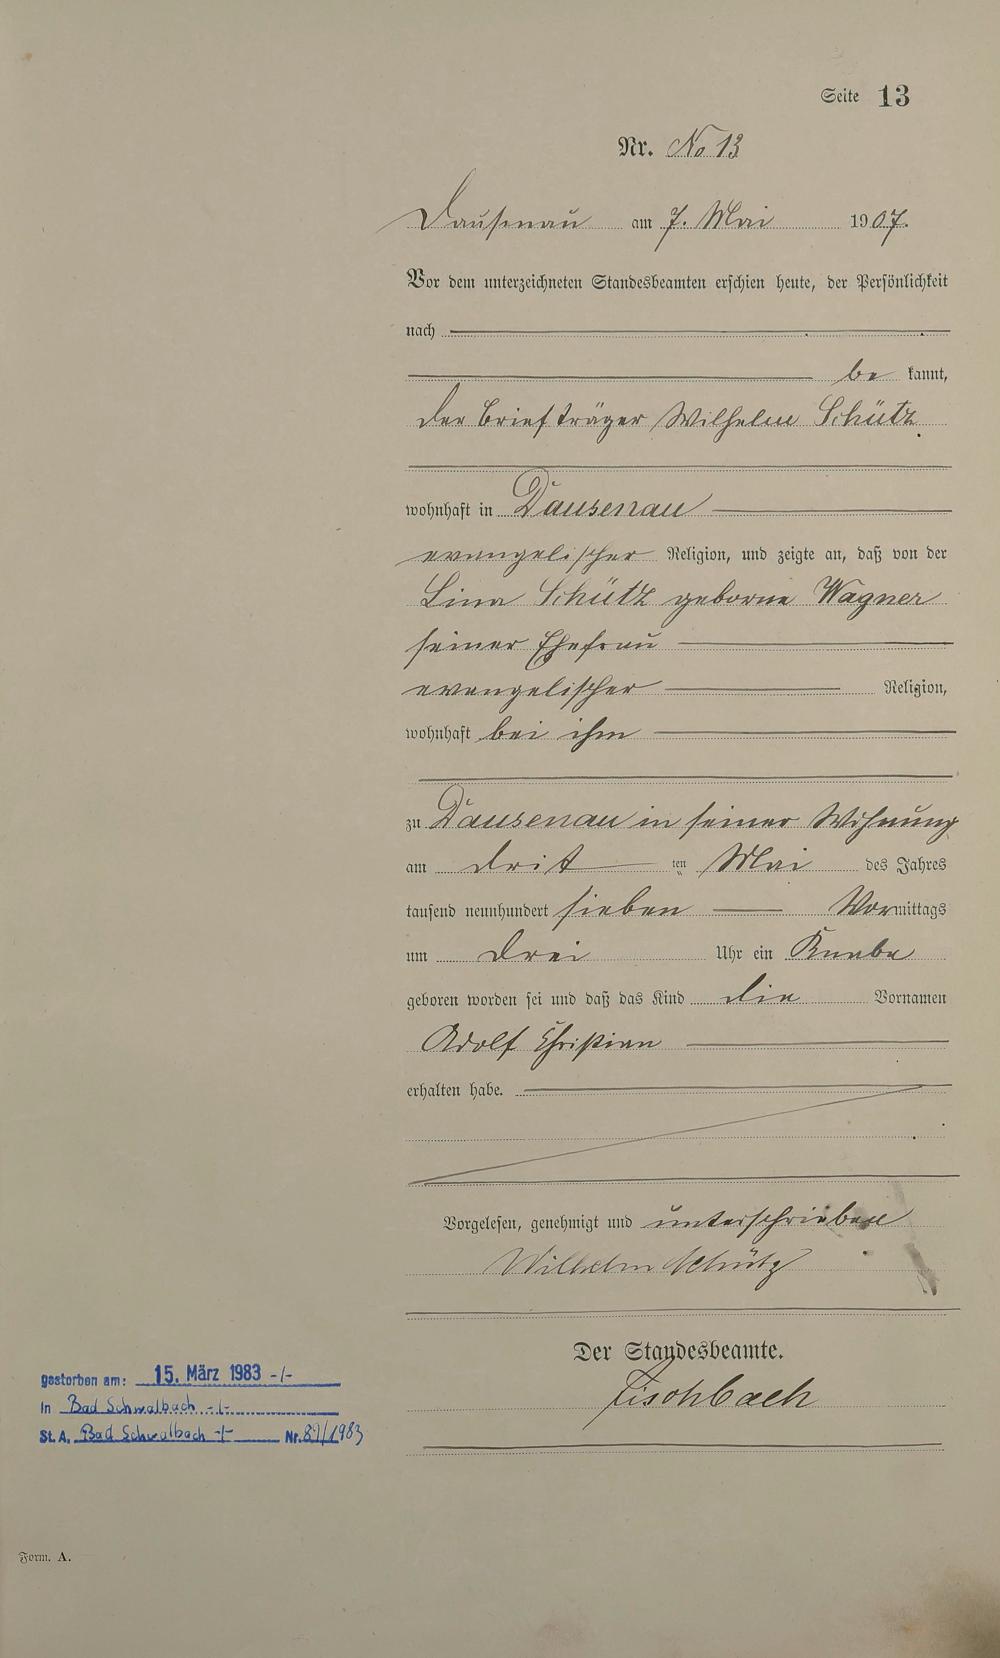 Seite 13
Nr. No 13
Dausenau am 7. Mai 1907.
Vor dem unterzeichneten Standesbeamten erschien heute, der Persönlichkeit
nach
be kannt,
der Briefträger Wilhelm Schütz
wohnhaft in Dausenau
evangelischer Religion, und zeigte an, daß von der
Lina Schütz geborne Wagner
seiner Ehefrau
evangelischer Religion,
wohnhaft bei ihm
zu Dausenau in seiner Wohnung
am dritten Mai des Jahres
tausend neunhundert sieben Vormittags
um drei Uhr ein Knabe
geboren worden sei und daß das Kind die Vornamen
Adolf Christian
erhalten habe.
Vorgelesen, genehmigt und unterschrieben
Wilhelm Schütz
Der Standesbeamte.
Fischbach
gestorben am: 15. März 1983 -/-
in Bad Schwalbach -/-
St. A. Bad Schwalbach -/- Nr. 89/1983
Form. A.